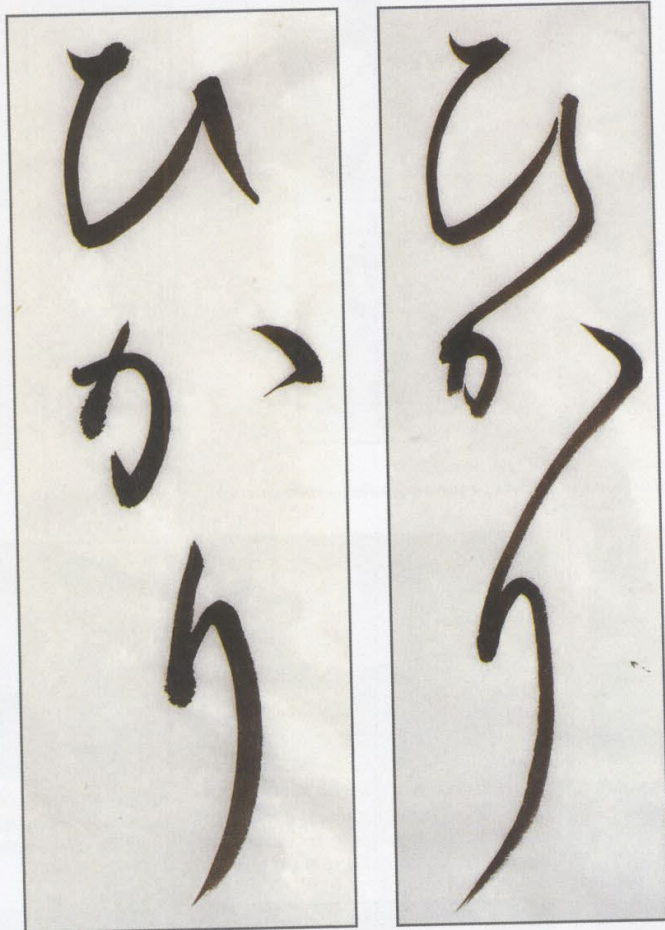 ひかり
ひかり